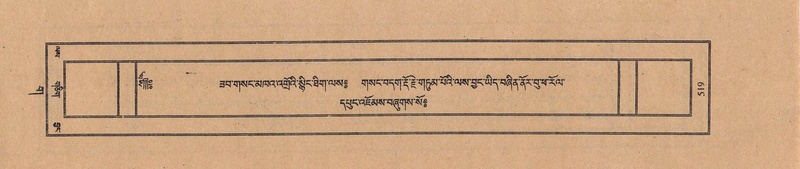 ཟབ་གསང་མཁའ་འགྲོའི་སྙིང་ཐིག་ལས༔ གསང་བདག་རྡོ་རྗེ་གཏུམ་པོའི་ལས་བྱང་ཡིད་བཞིན་ནོར་བུ་ཕ་རོལ་
དཔུང་འཇོམས་བཞུགས་སོ༔
གཅིག
519